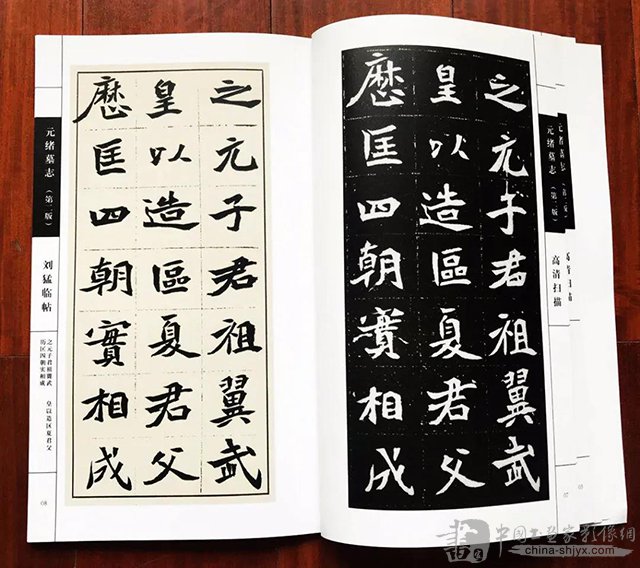 元绪墓志（第二版）
刘猛临帖
之元子君祖翼武 皇以造区夏君父
历匡四朝实相成
08
之元子君祖翼武
皇以造區夏君父
歷匡四朝實相成
之元子君祖翼武
皇以造區夏君父
歷匡四朝實相成
元绪墓志（第二版）
高清扫描
07
05
書 中国书画家影像網
china-shjyx.com